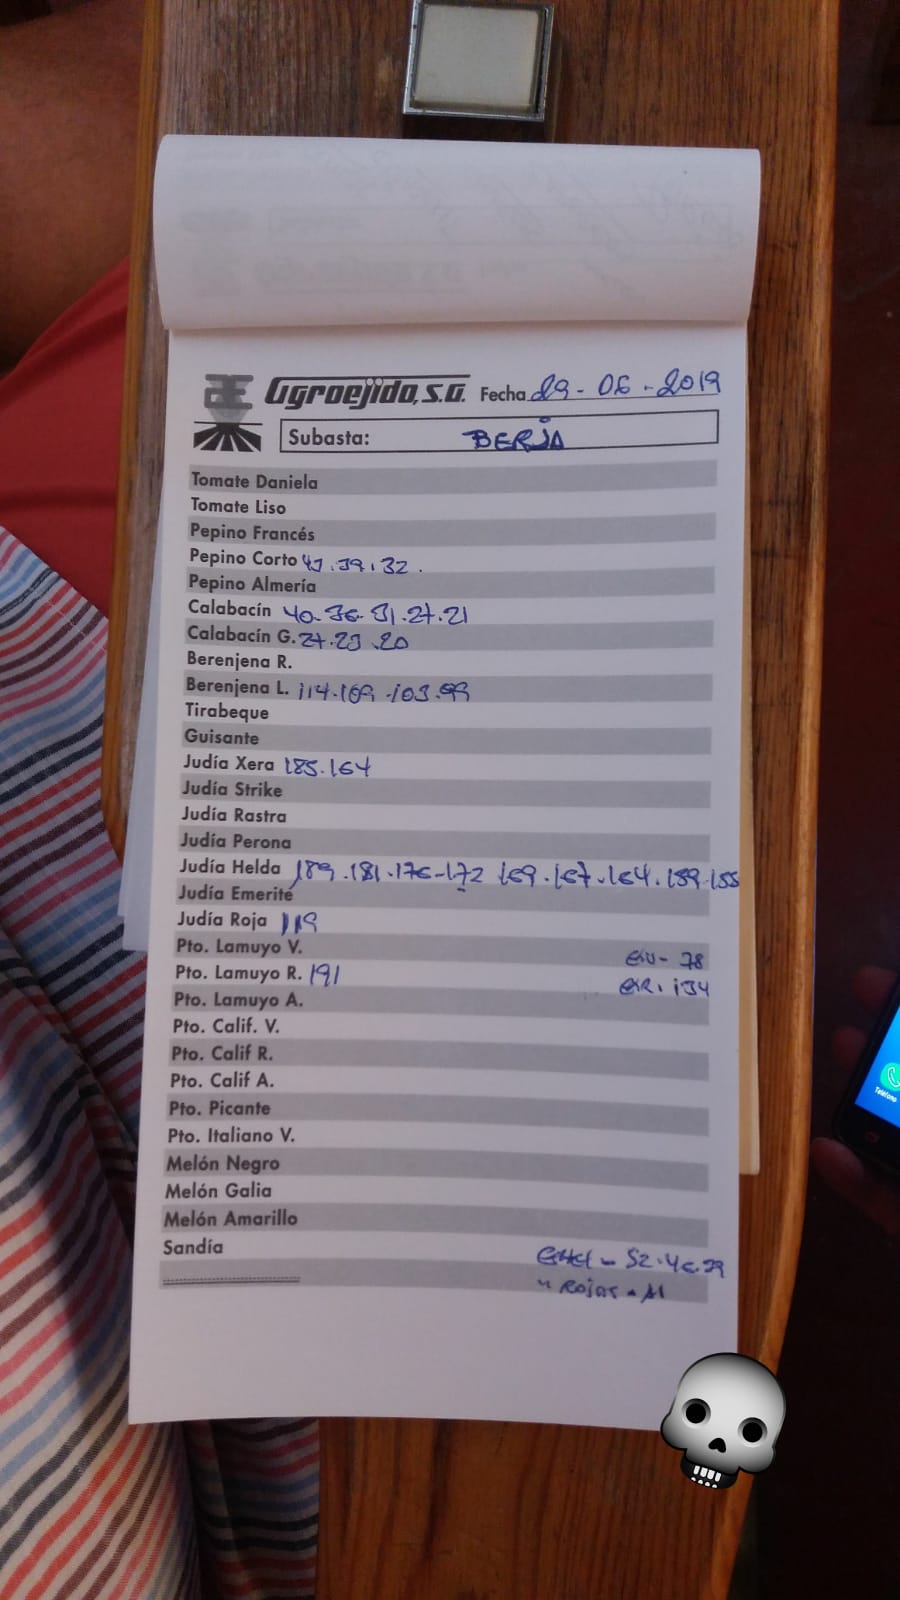 Agroejido, S.A. Fecha 29-06-2019
Subasta: BERJA
Tomate Daniela
Tomate Liso
Pepino Francés
Pepino Corto 43.39.32.
Pepino Almería
Calabacín 40.36.31.27.21
Calabacín G. 27.23.20
Berenjena R.
Berenjena L. 114.109.103.99
Tirabeque
Guisante
Judía Xera 185.164
Judía Strike
Judía Rastra
Judía Perona
Judía Helda 189.181.176-172 169.167.164.159.155
Judía Emerite
Judía Roja 119
Pto. Lamuyo V.
78
Pto. Lamuyo R. 191
134
Pto. Lamuyo A.
Pto. Calif. V.
Pto. Calif R.
Pto. Calif A.
Pto. Picante
Pto. Italiano V.
Melón Negro
Melón Galia
Melón Amarillo
Sandía
52.46.39
" ROJAS
Teléfono